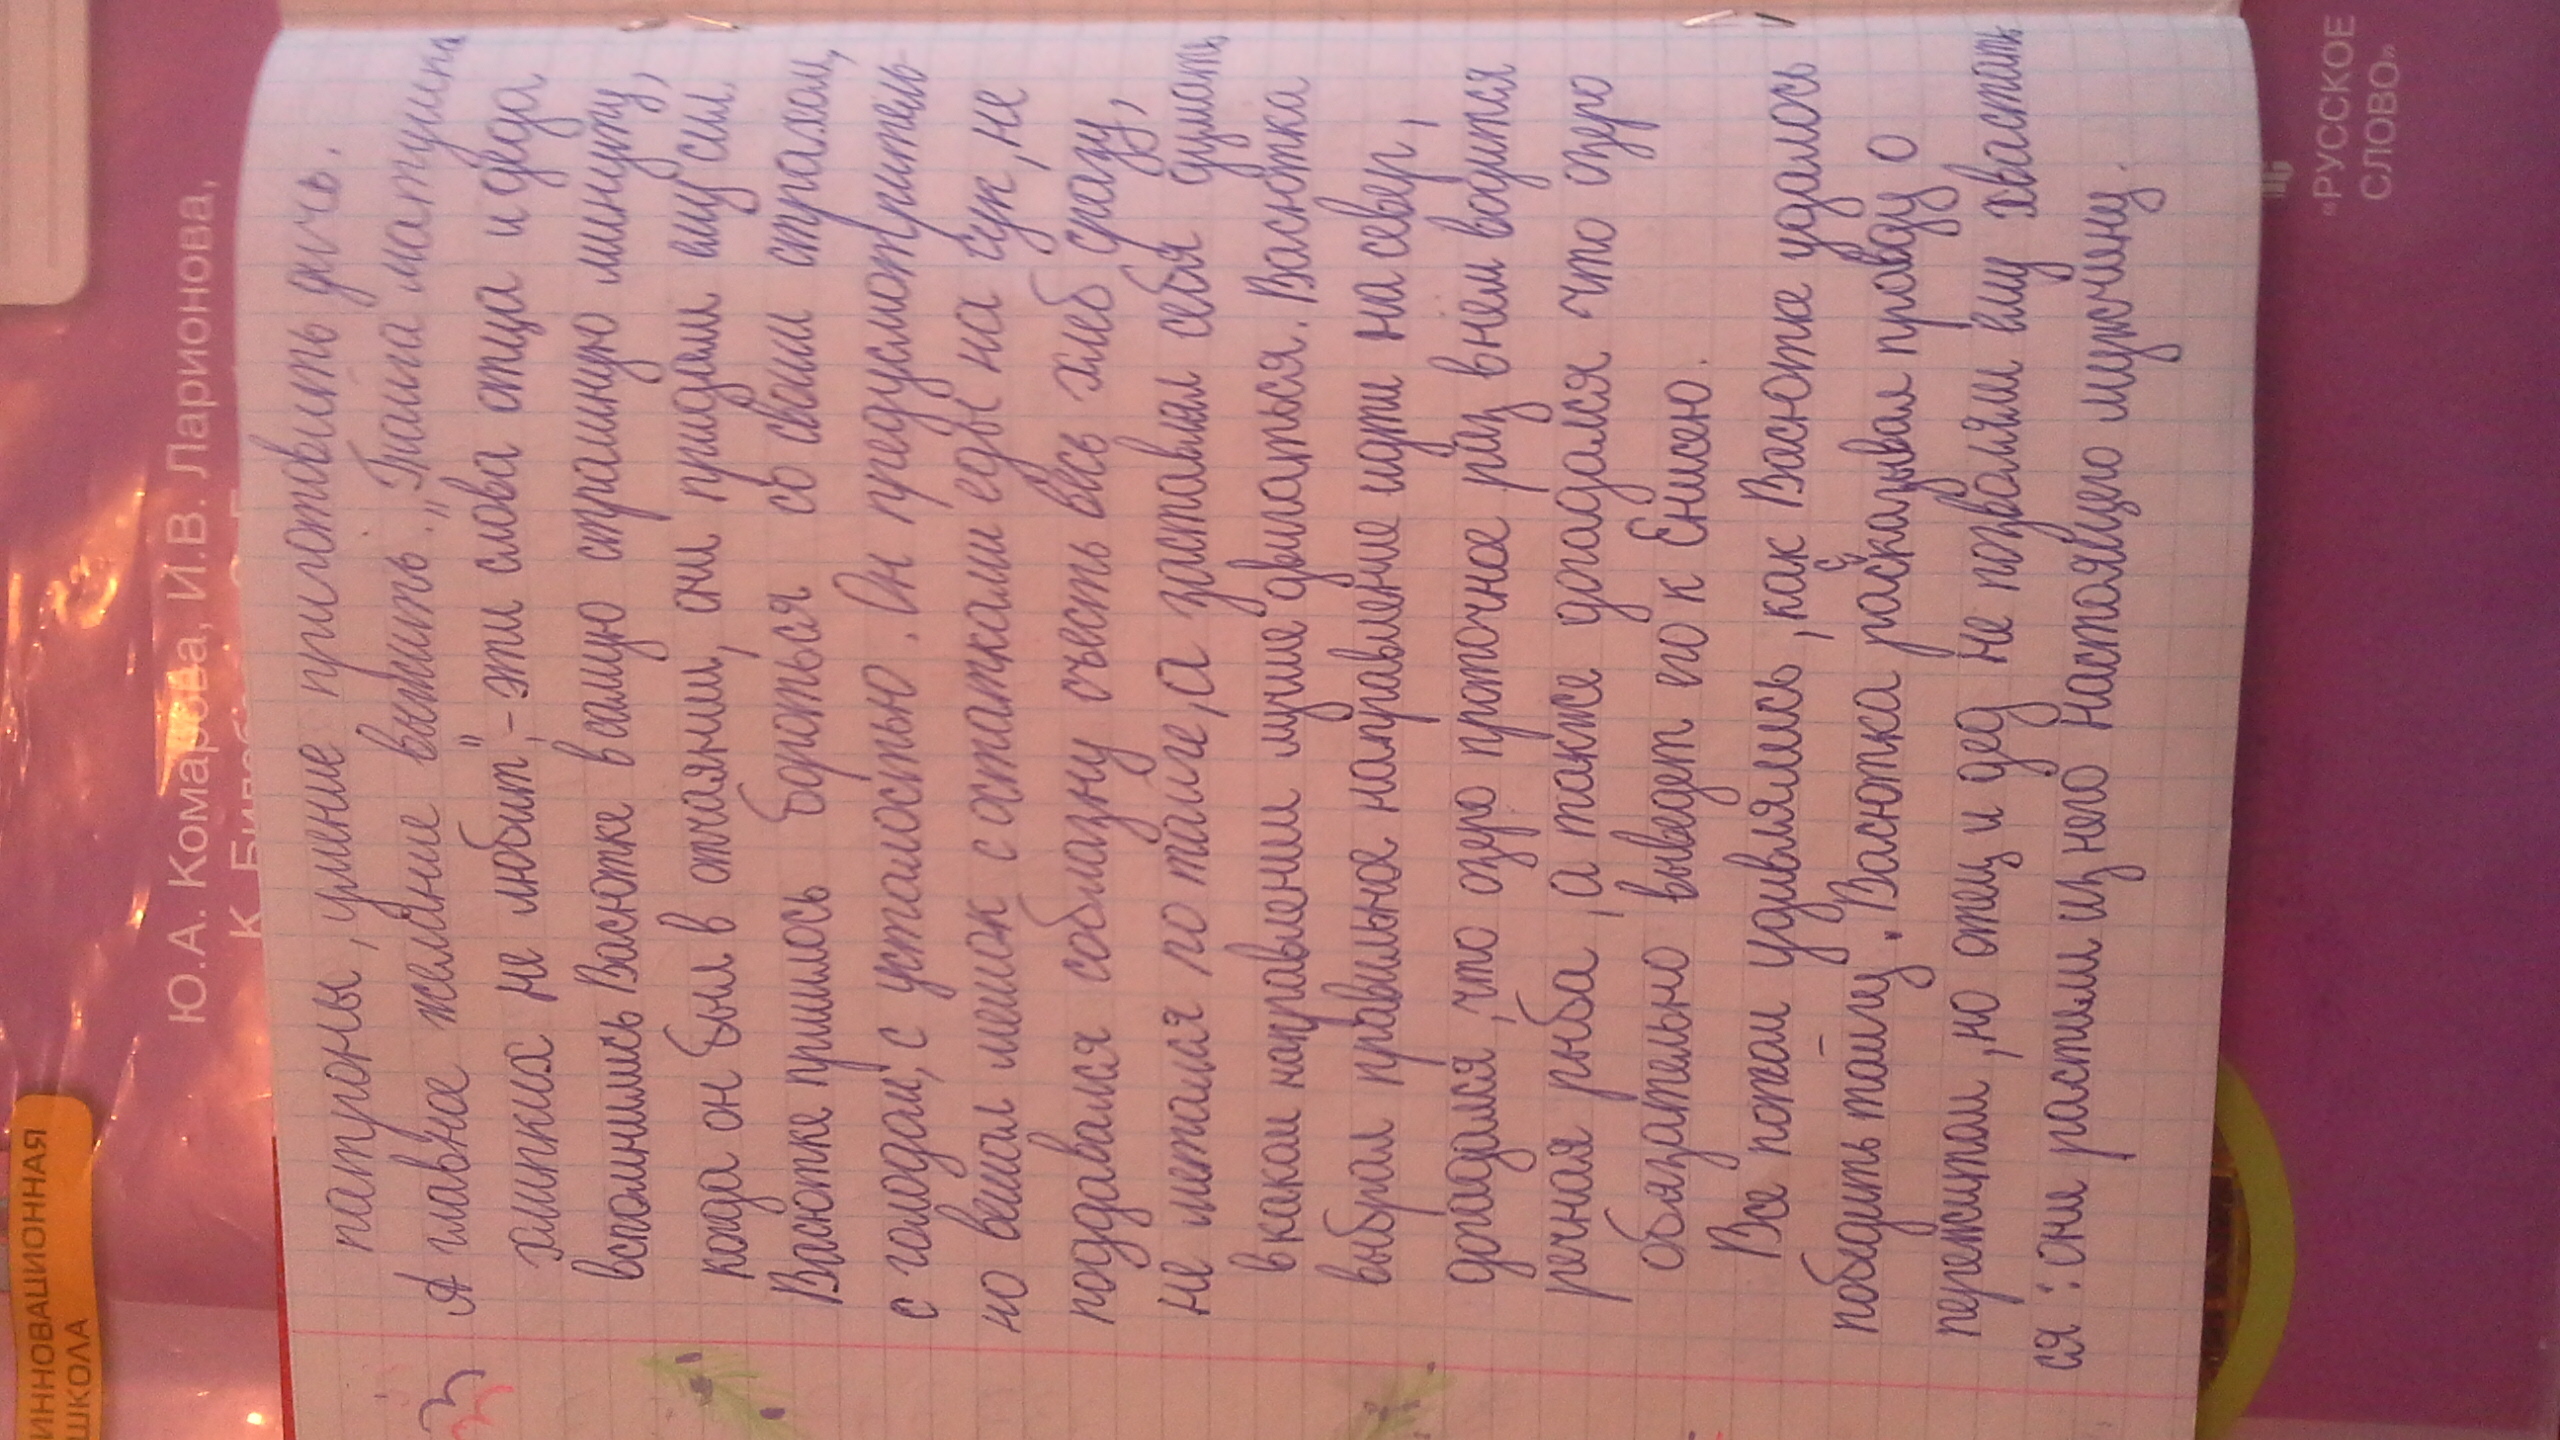 ИННОВАЦИОННАЯ
ШКОЛА
Ю.А. Комарова, И.В. Ларионова,
К.
патроны, умение приготовить дичь.
А главное желание выжить. „Тайга матушка
хлипких не любит", - эти слова отца и деда
вспомнились Васютке в самую страшную минуту,
когда он был в отчаянии, они придали ему сил.
Васютке пришлось бороться со своим страхом,
с голодом, с усталостью. Он предусмотритель
но вешал мешок с остатками еды на сук, не
поддавался соблазну съесть весь хлеб сразу,
не метался по тайге, а заставлял себя думать,
в каком направлении лучше двигаться. Васютка
выбрал правильное направление идти на север,
догадался, что озеро проточное раз в нём водится
речная рыба, а также догадался что озеро
обязательно выведет его к Енисею.
Все потом удивлялись, как Васютке удалось
победить тайгу. Васютка рассказывал правду о
пережитом, но отец и дед не позволяли ему хвастать
ся: они растили из него настоящего мужчину.
«РУССКОЕ
СЛОВО»